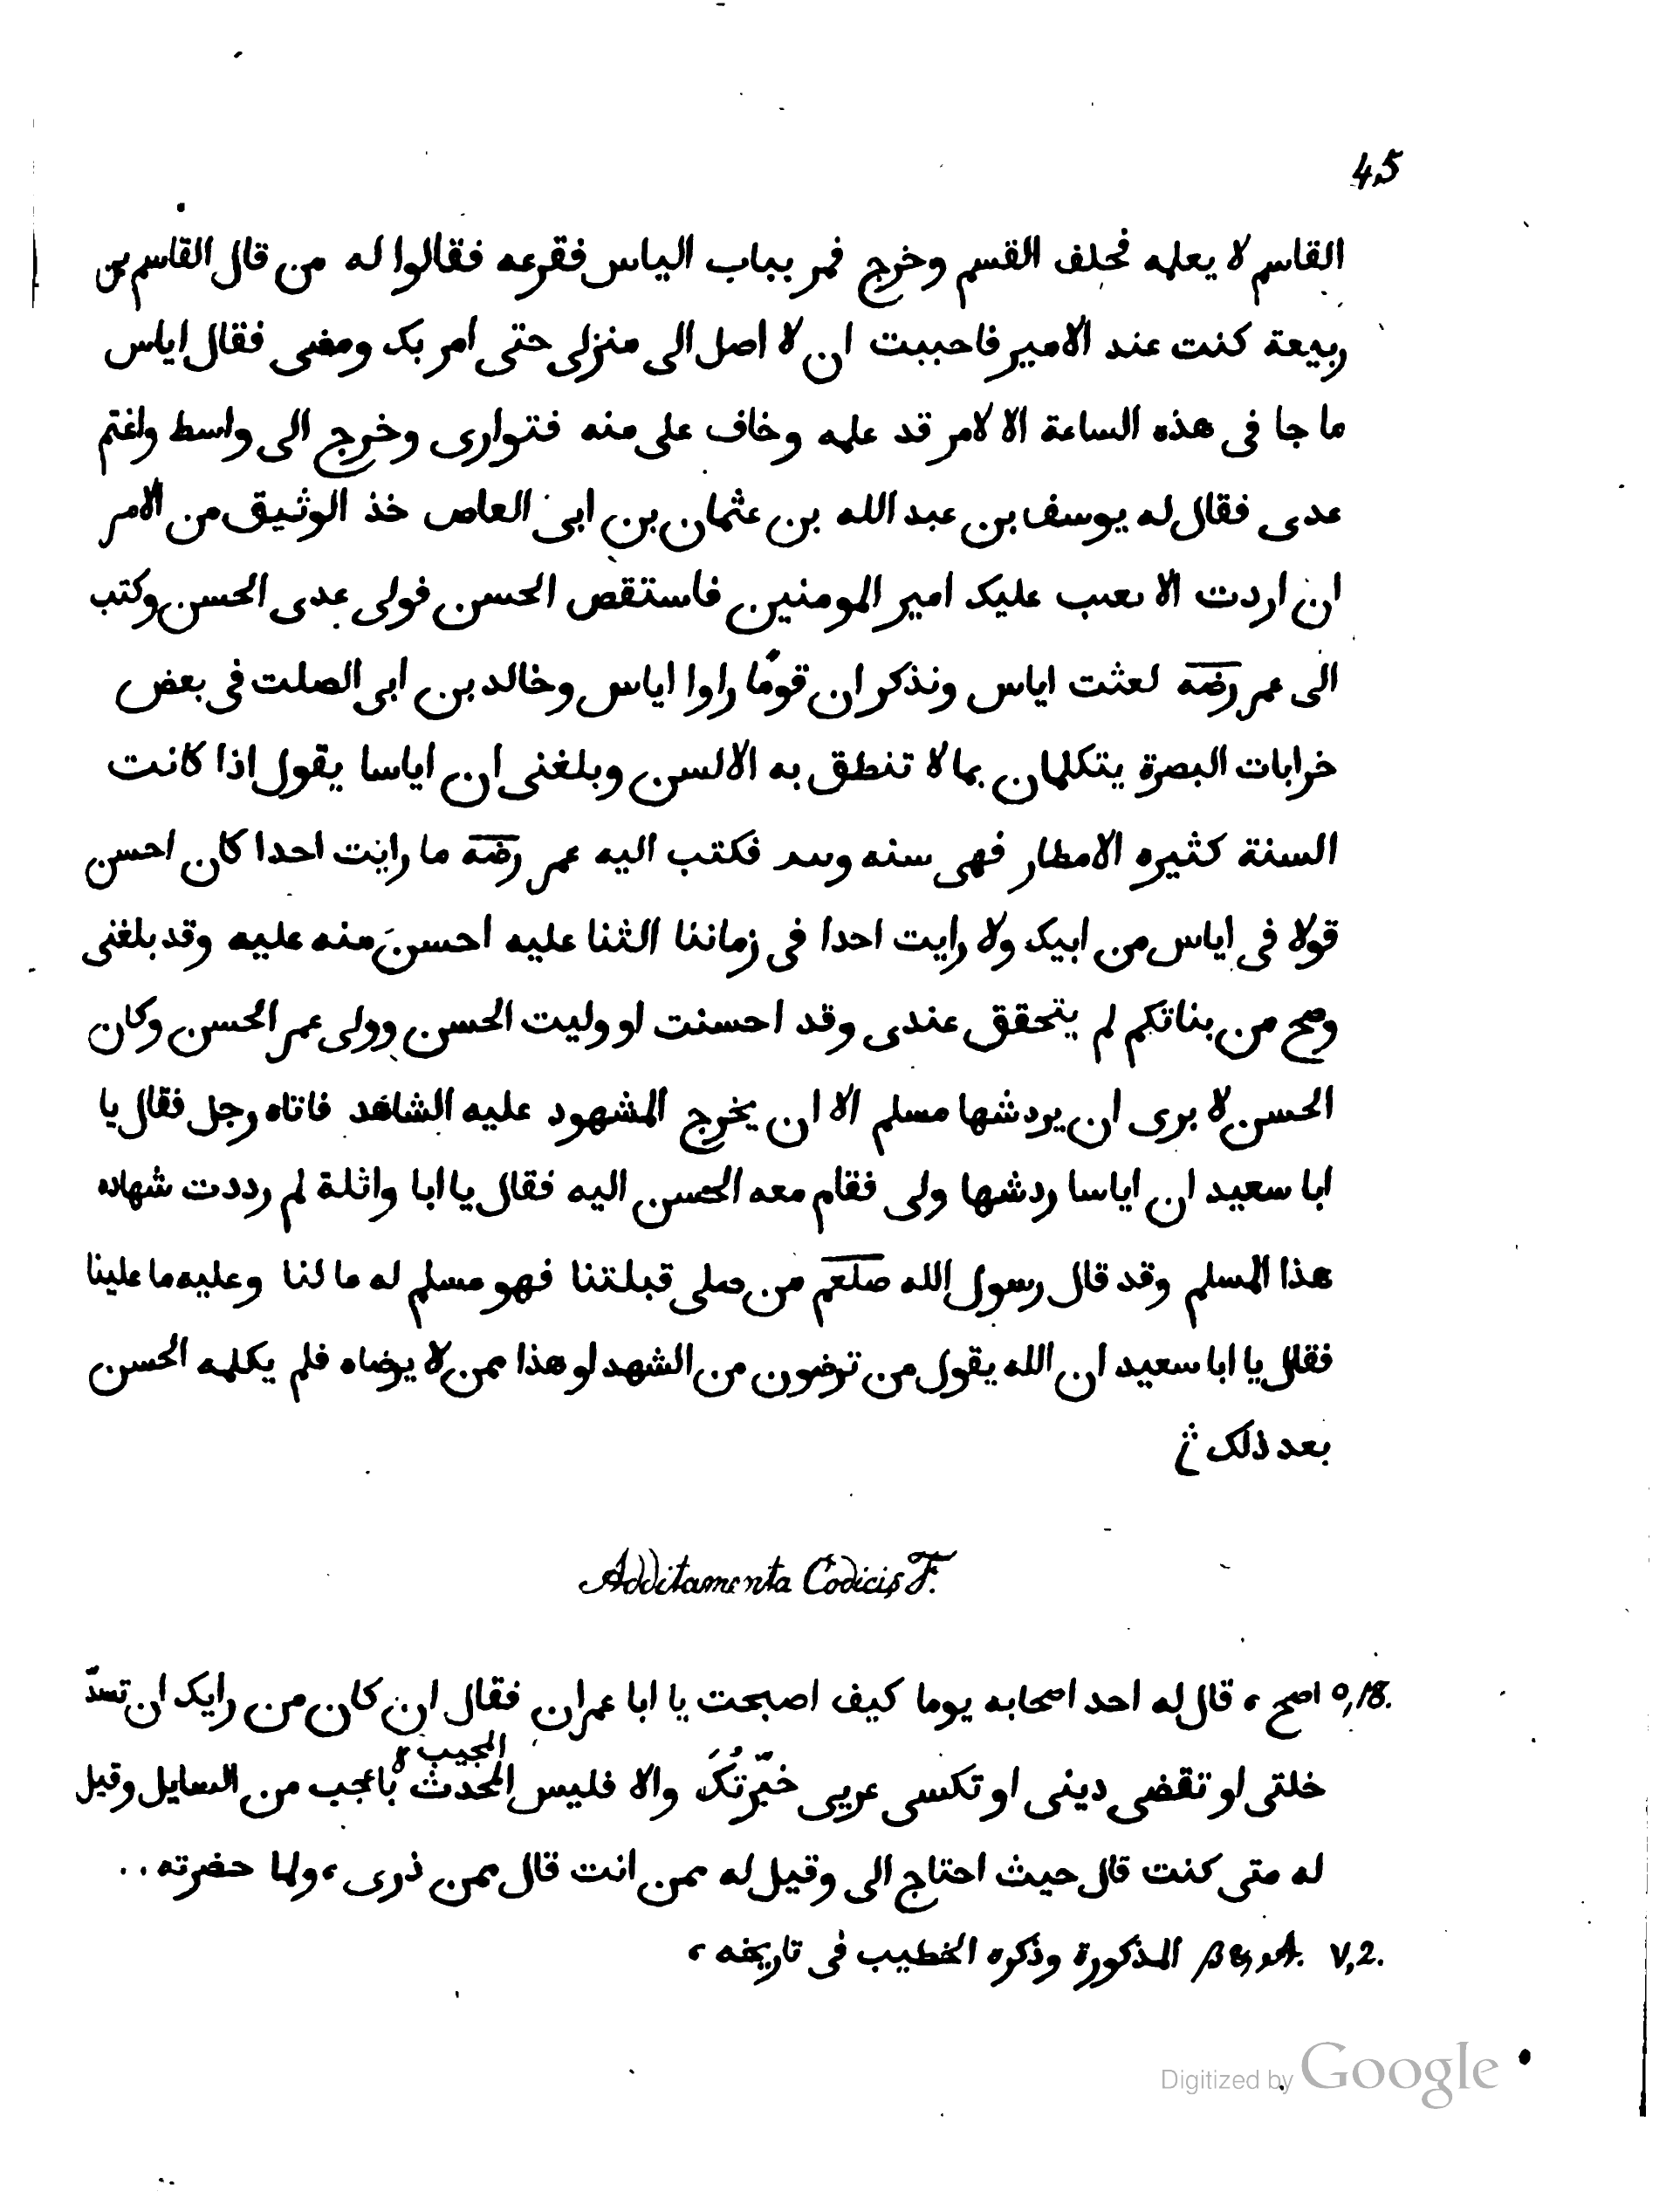 45
القاسم لا يعلمه فحلف القسم وخرج فمر بباب الياس فقرعه فقالوا له من قال القاسم بن
ربيعة كنت عند الامير فاحببت ان لا اصل الى منزلى حتى امر بك ومضى فقال اياس
ما جا فى هذه الساعة الا لامر قد علمه وخاف على منه فتوارى وخرج الى واسط واغتم
عدى فقال له يوسف بن عبد الله بن عثمان بن ابى العاص خذ الوثيق من الامر
ان اردت الا عليك امير المومنين فاستقص الحسن فولى عدى الحسن وكتب
الى عمر رضه لعثت اياس ونذكر ان قومًا راوا اياس وخالد بن ابى الصلت فى بعض
خرابات البصرة يتكلمان بما لا تنطق به الالسن وبلغنى ان اياسا يقول اذا كانت
السنة كثيره الامطار فهى سنه فكتب اليه عمر رضه ما رايت احدا كان احسن
قولا فى اياس من ابيك ولا رايت احدا فى زماننا الثنا عليه احسنَ منه عليه وقد بلغنى
وصح من بناتكم لم يتحقق عندى وقد احسنت او وليت الحسن وولى عمر الحسن وكان
الحسن لا برى ان يردشها مسلم الا ان يخرج المشهود عليه الشاهد فاتاه رجل فقال يا
ابا سعيد ان اياسا ردشها ولى فقام معه الحسن اليه فقال يا ابا واثلة لم رددت شهاده
هذا المسلم وقد قال رسول الله صلعم من صلى قبلتنا فهو مسلم له ما لنا وعليه ما علينا
فقال يا ابا سعيد ان الله يقول من ترضون من الشهد لو هذا ممن لا يرضاه فلم يكلمه الحسن
بعد ذلك
Additamenta Codicis F.
0,18. اصح ، قال له احد اصحابه يوما كيف اصبحت يا ابا عمران فقال ان كان من رايك ان تسدّ
المجيب
خلتى او تقضى دينى او تكسى عريى خبّرتُكَ والا فليس المحدث باعجب من السايل وقيل
له متى كنت قال حيث احتاج الى وقيل له ممن انت قال ممن ذرى ، ولما حضرته . .
V,2. المذكورة وذكره الخطيب فى تاريخه ،
Digitized by Google